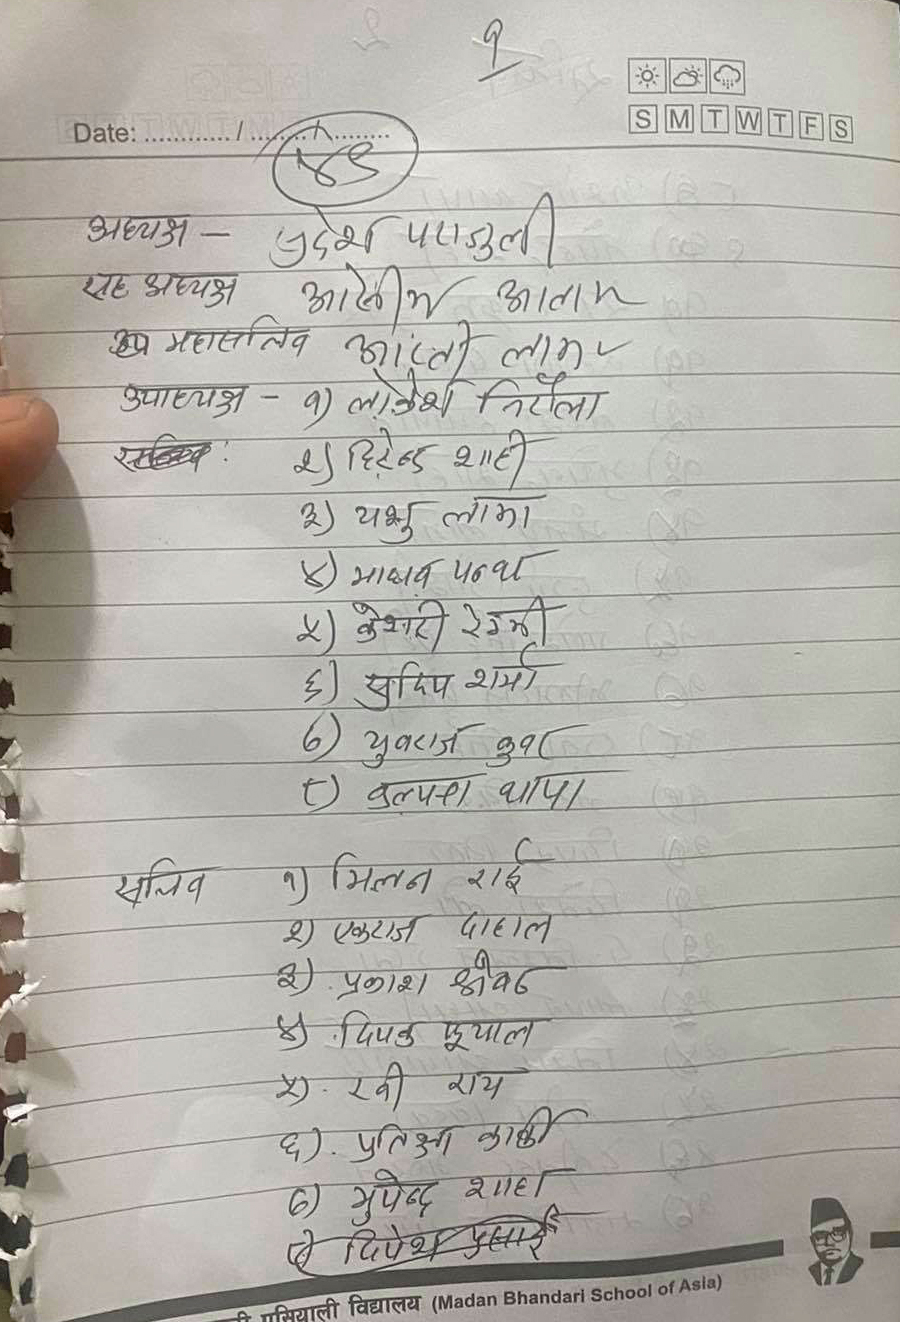 १
S M T W T F S
Date: ............ / ............
४९
अध्यक्ष - प्रदेश पराजुली
सह अध्यक्ष आसीम आलम
उप महासचिव आरती लामा
उपाध्यक्ष - १) लोकेश निरौला
२) हिरेन्द्र शाही
३) यशु लामा
४) माधव पन्था
५) केशरी रेग्मी
६) सुदिप शर्मा
७) युवराज कुवर
८) कल्पना थापा
सचिव १) मिलन राई
२) एकराज दाहाल
३) प्रकाश श्रीवर
४) दिपक फूयाल
५) रवी राय
६) प्रतिक्षा कार्की
७) भुपेन्द्र शाहा
८) दिपेश प्रसाई
एसियाली विद्यालय (Madan Bhandari School of Asia)